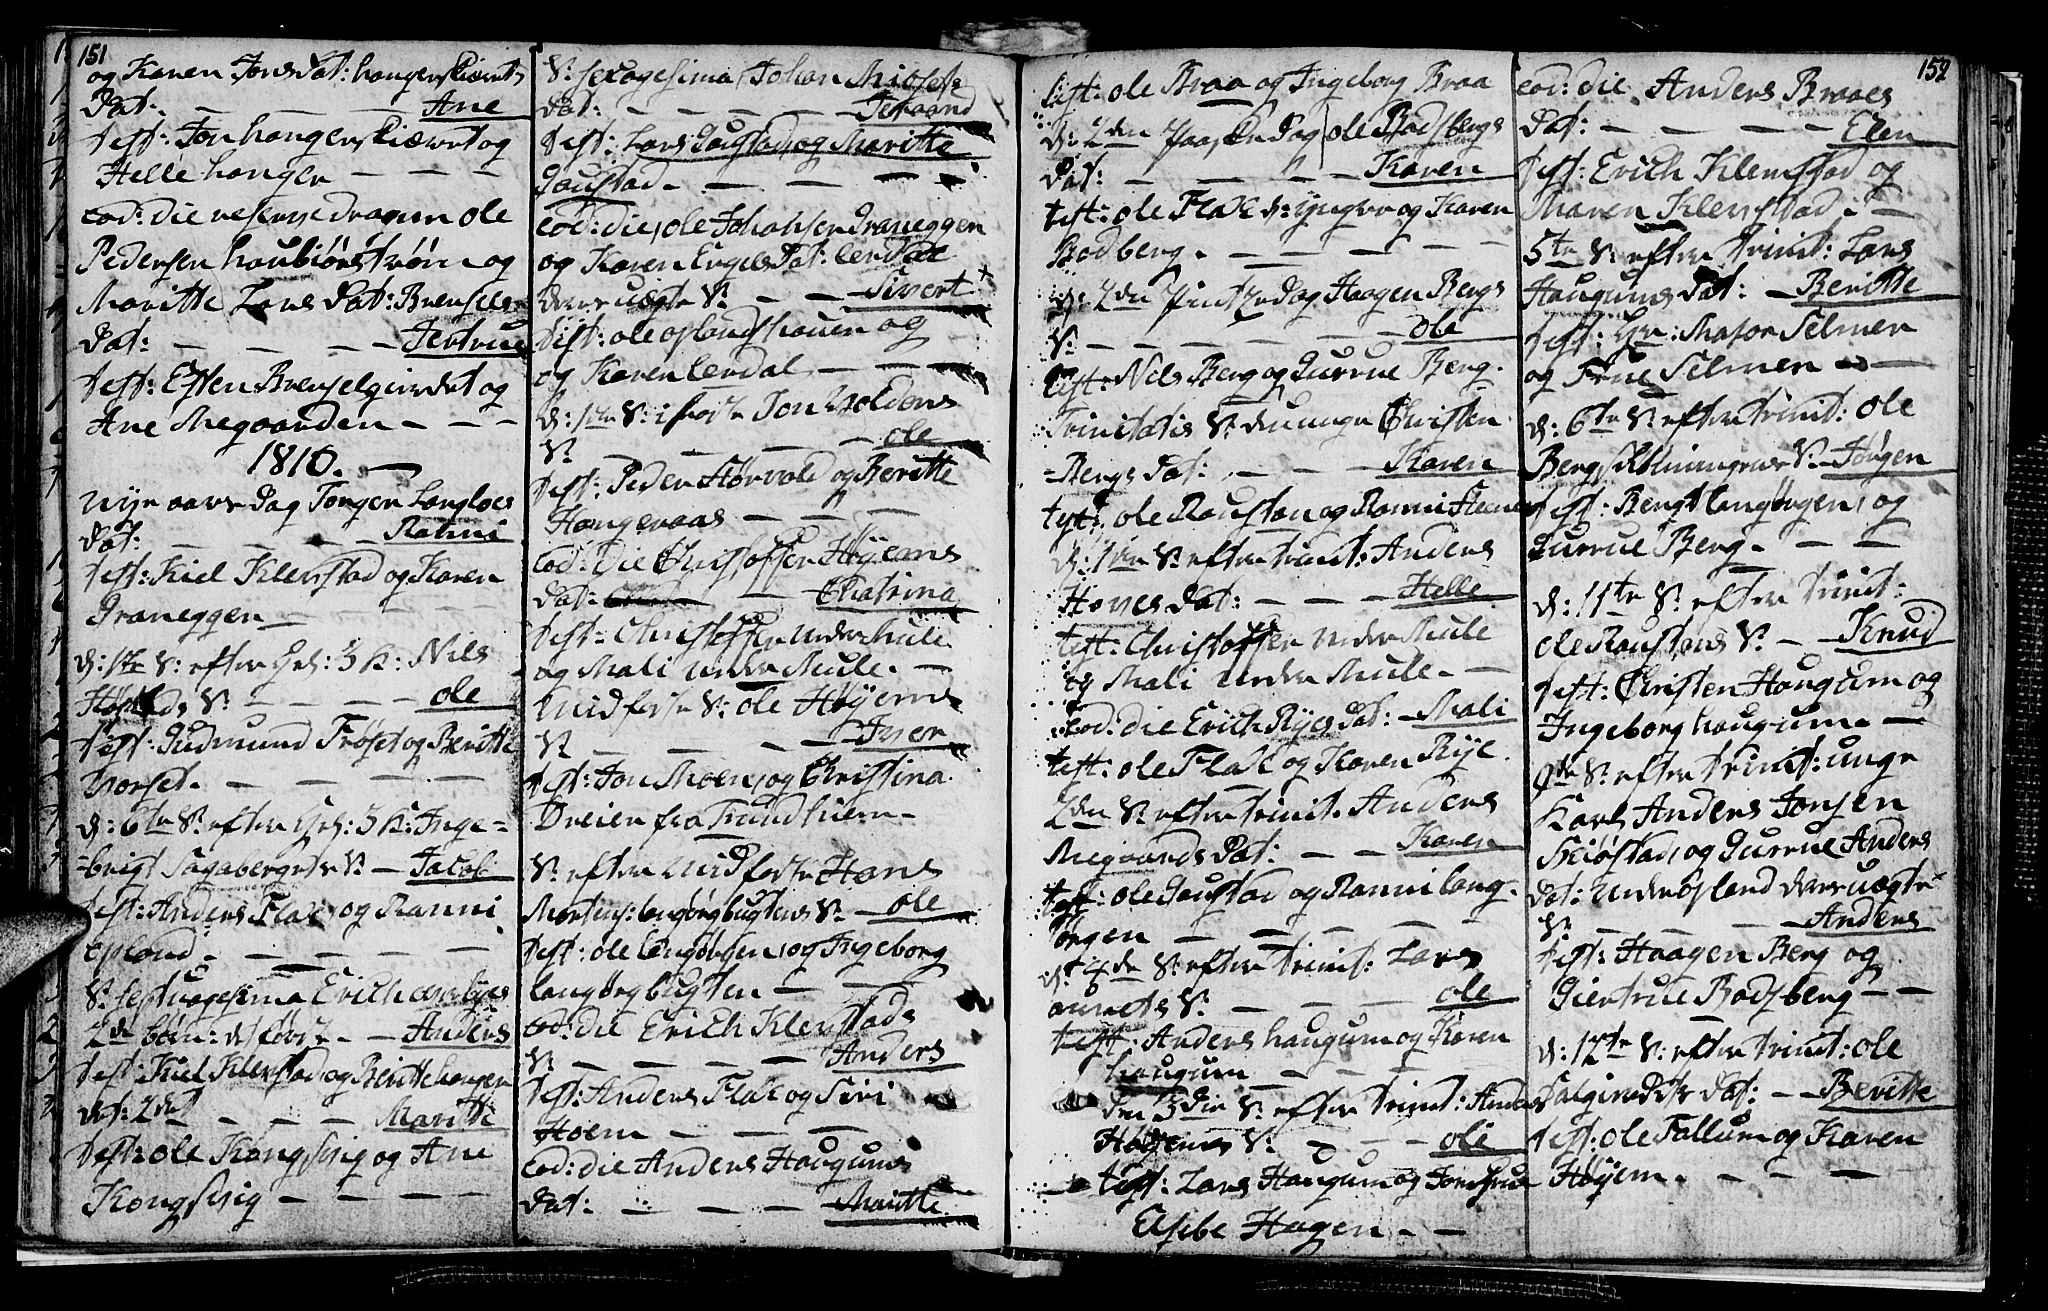 151
og Karen Jons Dat: haugens
Dat: — — — Ane
test: Jon haugens og
Helle haugen — — —
eod: die reserve dragun ole
Pedersen og
Maritte Lars Dat: Brensel
Dat: — — — Jertrue
test: Esten Brenselgierdet og
Ane Megaarden — — —
1810. —
Nye aars Dag Jørgen Langløes
Dat: — — — Ranni
test: Kiel Klenstad og Karen
Graneggen — — —
d: 1te S: efter Hel: 3 K: Nils
S: — — — — ole
test: Gudmund Frøset og Beritte
Norset. — — — —
d: 6te S: efter Hel: 3 K: Inge=
brigt Sagabergets S: — Jacob
test: Anders Flak og Ranni
opland — — — —
S: septuagesima Erich
2de børn: d: første — Anders
test: Kiel Klenstad og Beritte haugen
det: 2det — — — Maritte
test: ole Kongssvig og Ane
Kongssvig — — — —
S: sexagesima Johan
Dat: — — —
test: Lars Gaustad og Maritte
Gaustad — — — —
eod: die, ole Johansen Graneggen
og Karen Engels Dat: lerdal
deres uægte S: — — Sivert +
test: ole oplandshouen og
og Karen lerdal — — —
d: 1te S: i faste Jon Woldens
S: — — — ole
test: Peder Hørvold og Beritte
Haugeraas — — —
eod: die Christoffer Høyems
Dat: — Chatrina
test: Christoffer under Mule
og Mali under Mule. —
Midfaste S: ole Høyems
S: — — — Iver
test: Jon Moen, og Christina
Dreier fra Trundhiem —
S: efter Midfaste Hans
Mortens: langørgbugtens S: — ole
test: ole langørgen, og Ingeborg
langørgbugten — —
eod: die Erich Klenstads
S: — — — Anders
test: Anders Flak og Siri
Hoem — — — —
eod: die Anders Haugums
Dat: — — — Maritte
test: ole Braa og Ingeborg Braa
d: 2den Paaske Dag ole Bodsbergs
Dat: — — — Karen
test: ole Flak d: yngere og Karen
Bodberg. — — — —
d: 2den Pintzedag Haagen Bergs
S: — — — — ole
test: Nils Berg og Gurrue Berg.
Trinitatis S: den unge Christen
=Bergs Dat: — — Karen
test: ole Raustan og Ranni
d: 1ste S: efter trinit: Anders
Høves Dat: — — — Helle
test: Christoffer under Mule
og Mali under Mule — —
eod: die Erich Ryes Dat: — Mali
test: ole Flak og Karen Rye
2den S: efter trinit. Anders
Megaards Dat: — — Karen
test: ole Gaustad og Ranni lang-
ørgen — — — —
d: 4de S: efter trinit: Lars
S: — — — ole
test: Anders haugum og Karen
haugum — — — —
den 3die S: efter trinit: Anders
S: — — — ole
test: Lars Haugum og
Elsebe Hagen — —
152
eod: die Anders Braaes
Dat: — — — — Elen
test: Erich Klenstad og
Maren Klenstad: —
5te S: efter trinit: Lars
Haugums Dat: — Beritte
test: Hr: Major Selmer
og Frue Selmer — —
d: 6te S: efter trinit: ole
Berg S: — Jørgen
test: Bengt langørgen, og
Gurrue Berg — — —
d: 11te S: efter trinit:
ole Raustans S: — Knud
test: Christen Haugum og
Ingeborg haugum. —
9de S: efter trinit: unge
Karl Anders Jonsen
og Gurrue Anders
Dat: Underopland deres uægte
S: — — — Anders
test: Haagen Berg og
Giertrue Bodsberg — —
d: 12te S: efter trinit: ole
Dat: — Beritte
test: ole Tallum og Karen
Høyem. — — — —